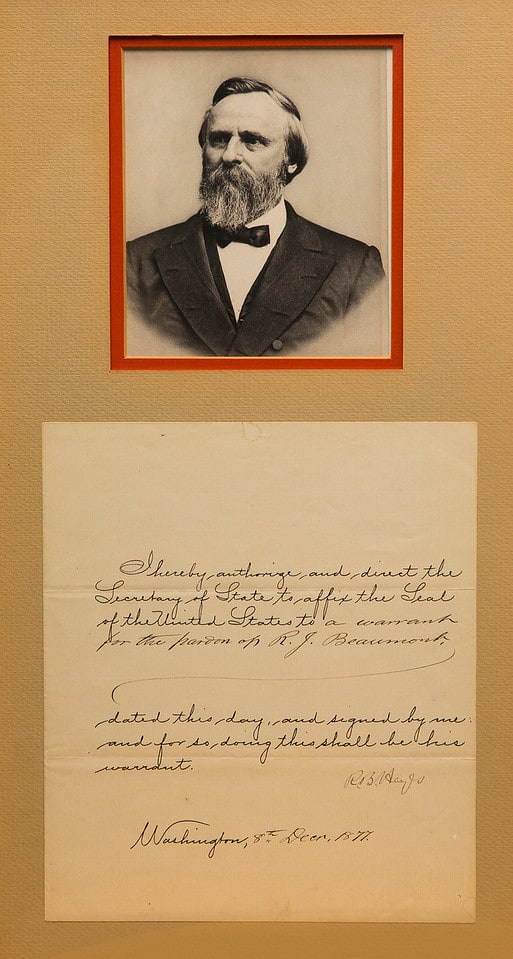 I hereby authorize and direct the
Secretary of State to affix the Seal
of the United States to a warrant
for the pardon of R. J. Beaumont,
dated this day, and signed by me:
and for so doing this shall be his
warrant.
R. B. Hayes
Washington, 8th Decr, 1877.